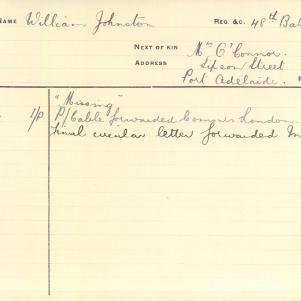 NAME William Johnston REG. &C. 48th Bat
NEXT OF KIN Mrs O'Connor
ADDRESS Lipson Street
Port Adelaide.
"Missing"
1/p P/Cable forwarded Comgus London.
Final circular letter forwarded